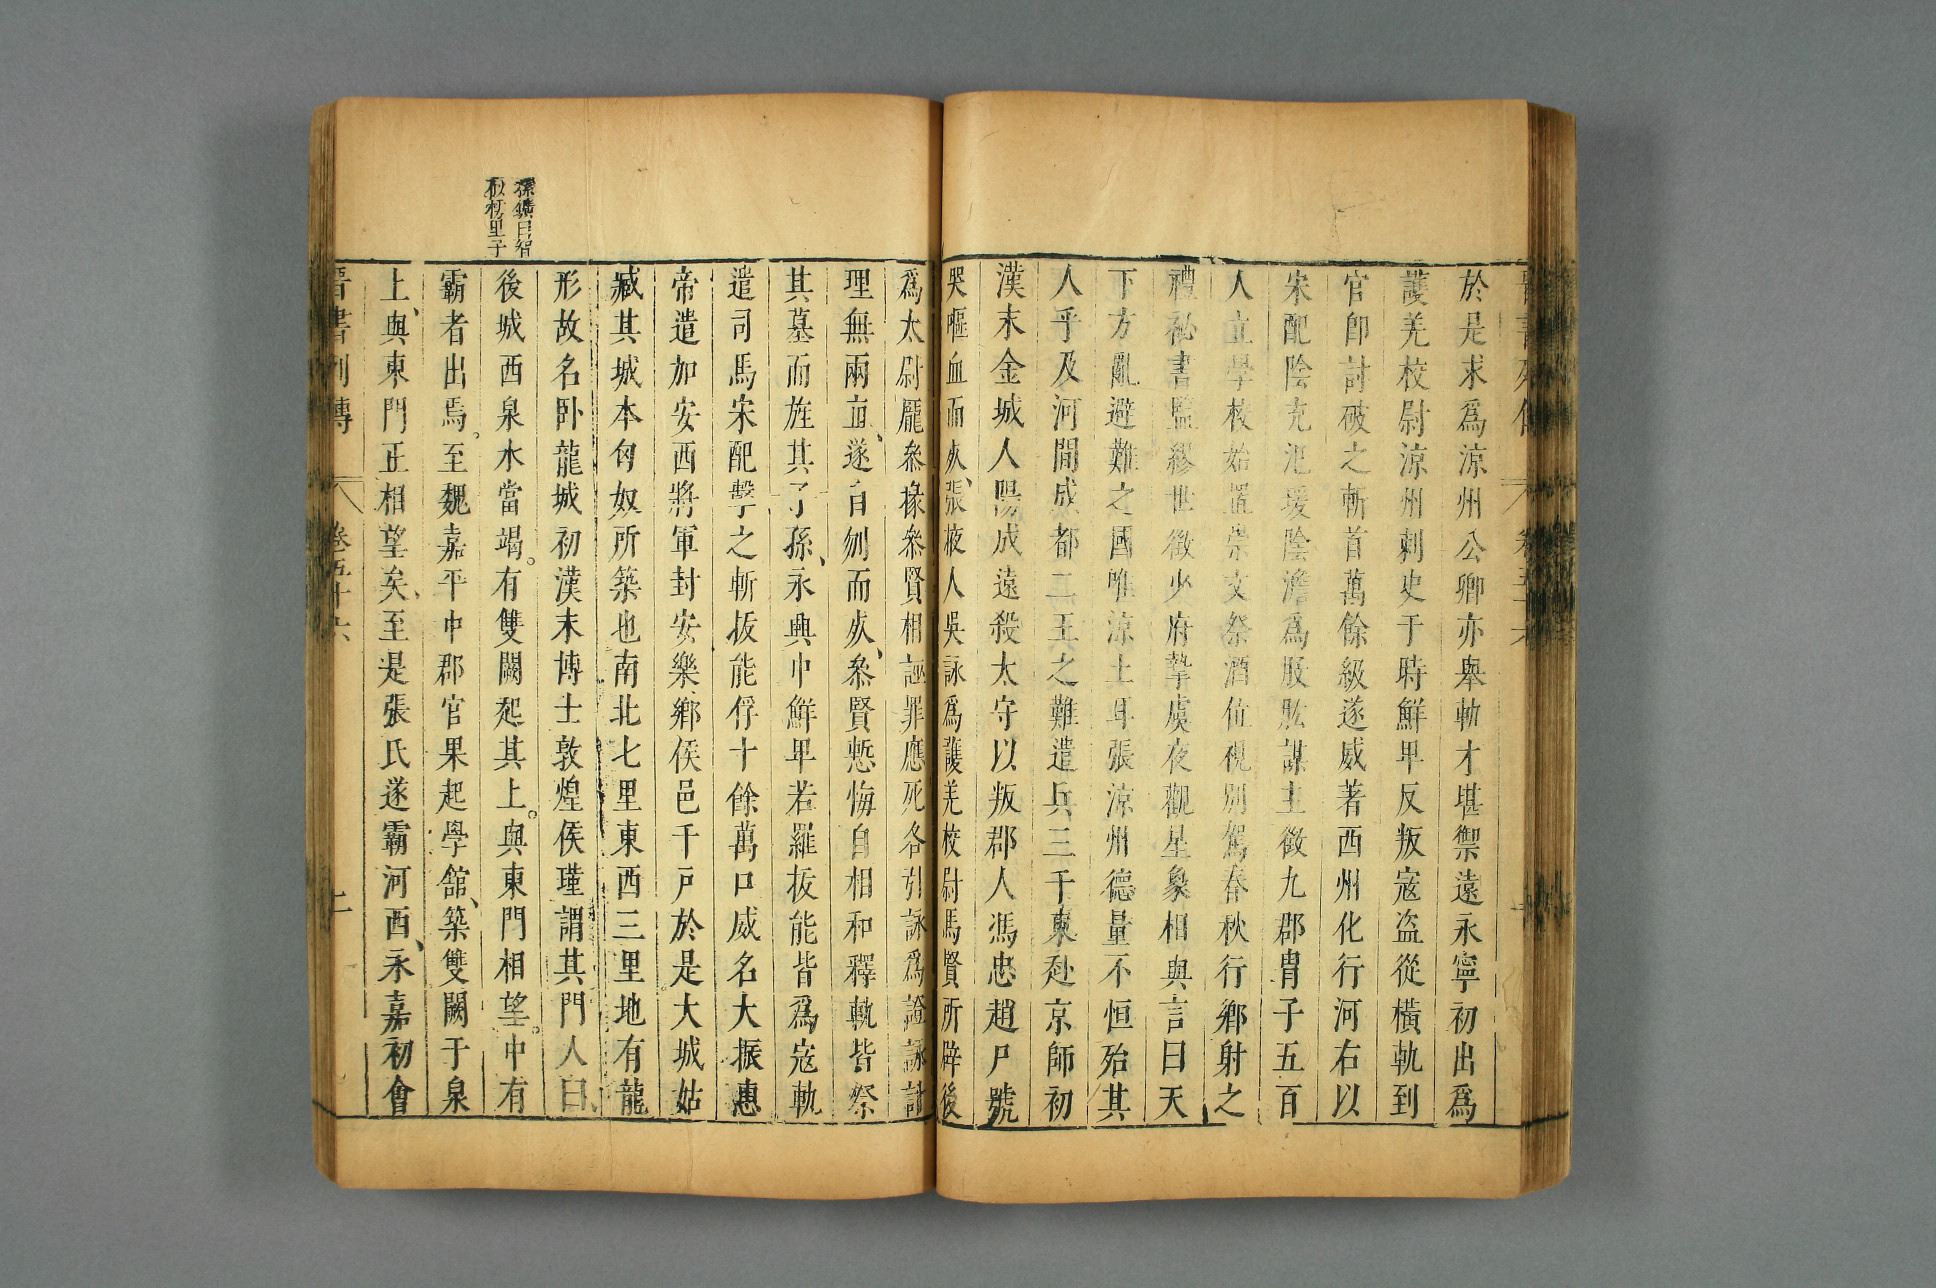 於是求爲涼州公卿亦舉軌才堪禦遠永寧初出爲
護羌校尉涼州刺史于時鮮卑反叛寇盜從橫軌到
官卽討破之斬首萬餘級遂威著西州化行河右以
宋配陰充氾瑗陰澹爲股肱謀主徵九郡胄子五百
人立學校始置崇文祭酒位視別駕春秋行鄉射之
禮祕書監繆世徵少府摯虞夜觀星象相與言曰天
下方亂避難之國唯涼土耳張涼州德量不恒殆其
人乎及河間成都二王之難遣兵三千東赴京師初
漢末金城人陽成遠殺太守以叛郡人馮忠趙尸號
哭嘔血而死、張掖人吳詠爲護羌校尉馬賢所辟後
爲太尉龐參掾參賢相誣罪應死各引詠爲證詠計
理無兩直、遂自刎而死、參賢慙悔自相和釋軌皆祭
其墓而旌其子孫、永興中鮮卑若羅拔能皆爲寇軌
遣司馬宋配擊之斬拔能俘十餘萬口威名大振惠
帝遣加安西將軍封安樂鄉侯邑千戶於是大城姑
臧其城本匈奴所築也南北七里東西三里地有龍
形故名卧龍城初漢末博士敦煌侯瑾謂其門人曰、
後城西泉水當竭。有雙闕起其上。與東門相望。中有
霸者出焉。至魏嘉平中郡官果起學舘、築雙闕于泉
上、與東門正相望矣、至是張氏遂霸河西、永嘉初會
晉書列傳 卷五十六 二
孫鑛曰智
似樗里子